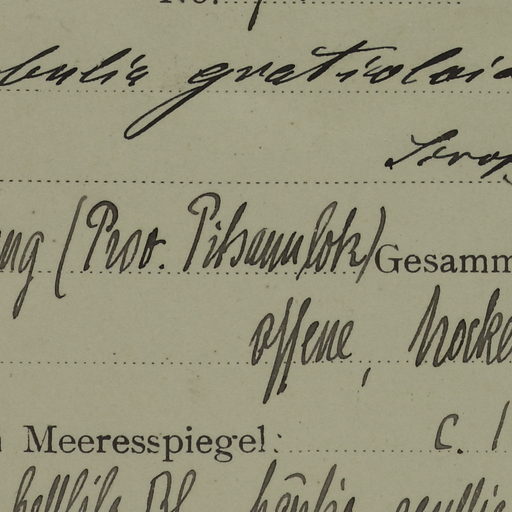 No.
bulia gratioloid
Scrop
ng (Prov. Pitsanulok) Gesamm
offene, trocke
Meeresspiegel: c. 1
helllila Bl. häufig